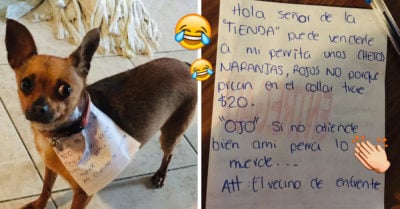 Hola señor de la
"TIENDA" puede venderle
a mi perrita unos CHETOS
NARANJAS, ROJOS NO porque
pican en el collar trae
$20.
"OJO" Si no atiende
bien ami perra lo
muerde...
Att: El vecino de enfrente